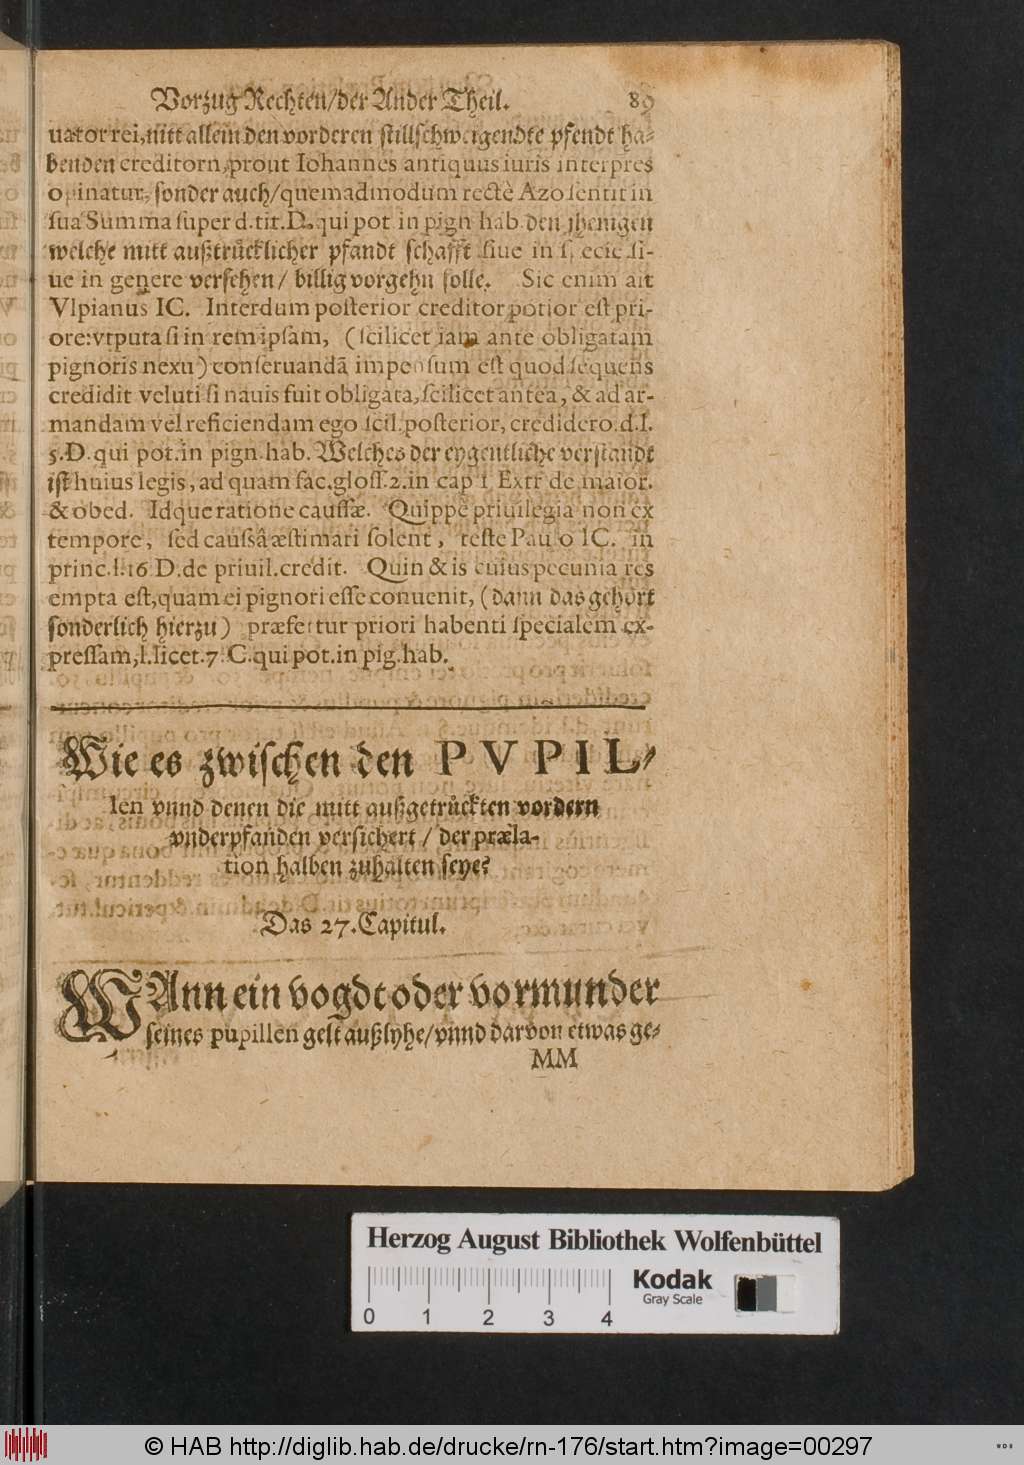 Vorzug Rechten/der Ander Theil. 89
uator rei, nitt allein den vorderen stillschweigendte pfendt ha-
benden creditorn, prout Iohannes antiquus iuris interpres
opinatur, sonder auch/quemadmodum rectè Azo sentit in
sua Summa super d. tit. D. qui pot in pign hab. den jhenigen
welche mitt außtrücklicher pfandt schafft siue in specie si-
ue in genere versehen/ billig vorgehn solle. Sic enim ait
Vlpianus IC. Interdum posterior creditor potior est pri-
ore: vt puta si in rem ipsam, (scilicet iam ante obligatam
pignoris nexu) conseruandã impensum est quod sequens
credidit veluti si nauis fuit obligata, scilicet antea, & ad ar-
mandam vel reficiendam ego scil. posterior, credidero. d. l.
5. D. qui pot. in pign. hab. Welches der eygentliche verstandt
ist huius legis, ad quam fac. gloss. 2. in cap 1 Extr de maior.
& obed. Idque ratione caussæ. Quippe priuilegia non ex
tempore, sed caussâ æstimari solent, teste Paulo IC. in
princ. l. 16 D. de priuil. credit. Quin & is cuius pecunia res
empta est, quam ei pignori esse conuenit, (dann das gehört
sonderlich hierzu) præfertur priori habenti specialem ex-
pressam, l. licet. 7 C. qui pot. in pig. hab.
Wie es zwischen den PVPIL-
len vnnd denen die mitt außgetrückten vordern
vnderpfanden versichert / der præla-
tion halben zuhalten seye?
Das 27. Capitul.
WAnn ein vogdt oder vormunder
seines pupillen gelt außlyhe/vnnd darvon etwas ge-
MM
Herzog August Bibliothek Wolfenbüttel
Kodak
Gray Scale
0 1 2 3 4
© HAB http://diglib.hab.de/drucke/rn-176/start.htm?image=00297